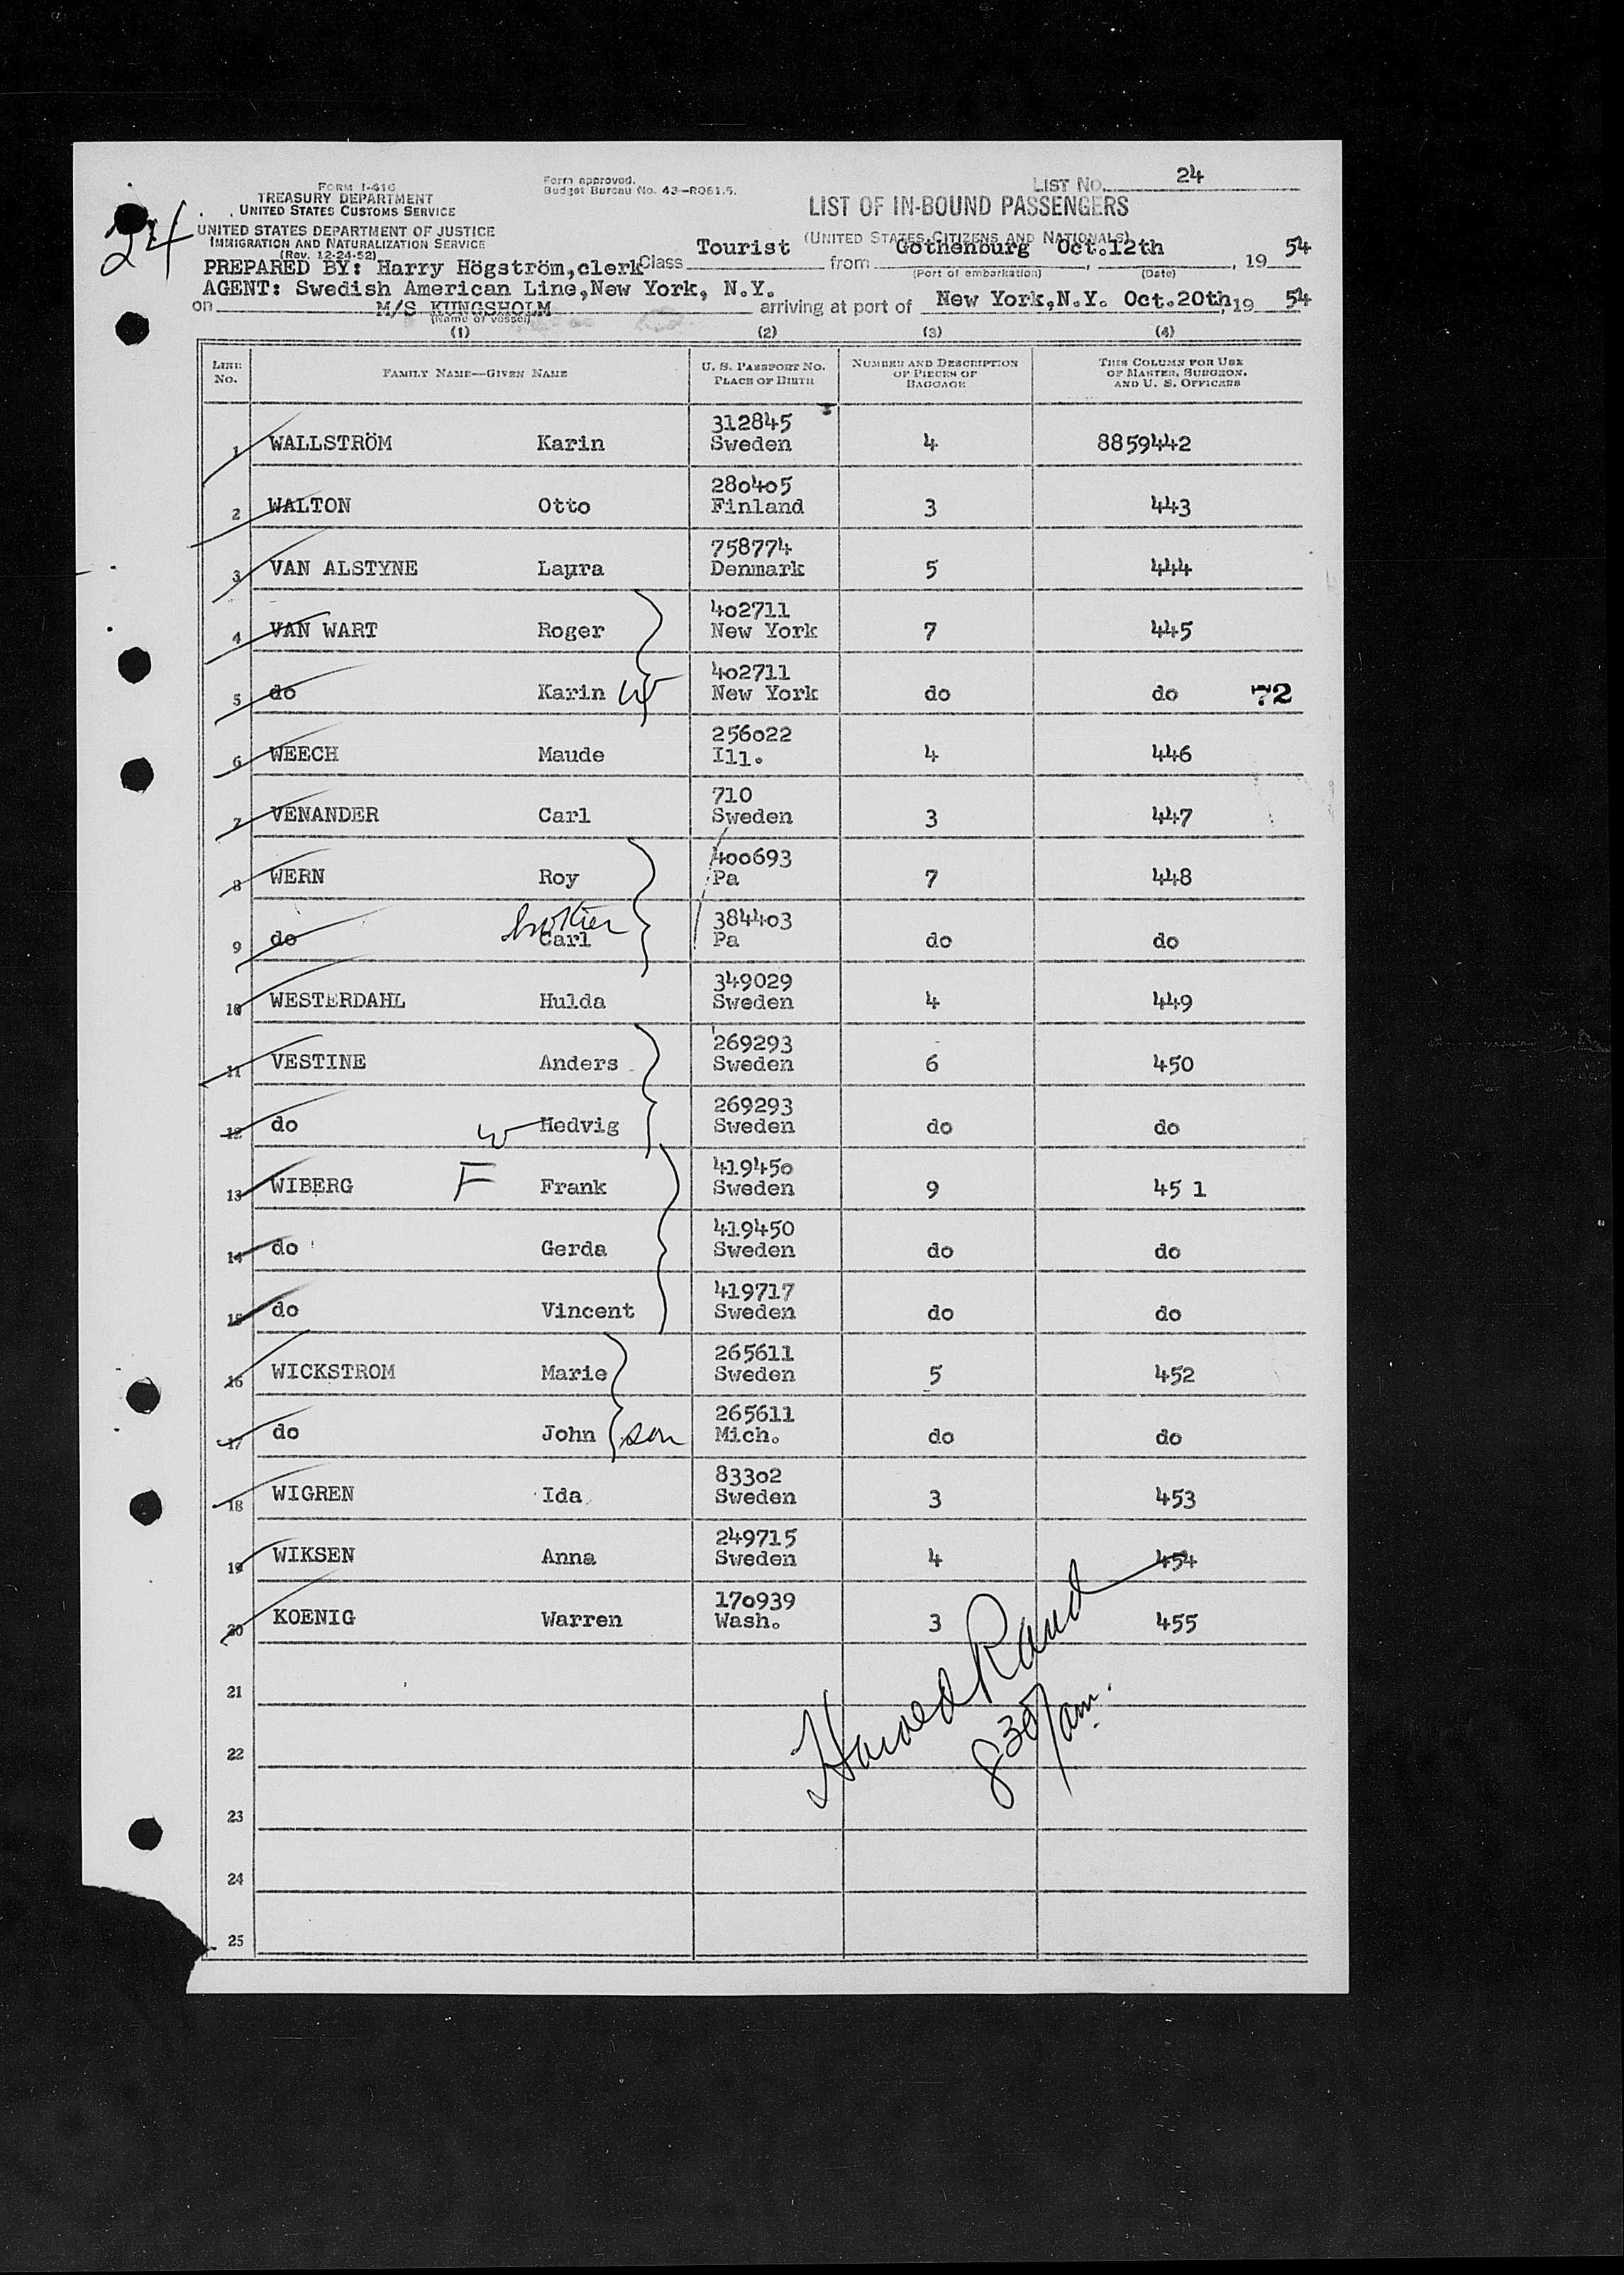 24
FORM I-416
TREASURY DEPARTMENT
UNITED STATES CUSTOMS SERVICE
UNITED STATES DEPARTMENT OF JUSTICE
IMMIGRATION AND NATURALIZATION SERVICE
(Rev. 12-24-52)
Form approved.
Budget Bureau No. 43-R061.5.
LIST No. 24
LIST OF IN-BOUND PASSENGERS
(UNITED STATES CITIZENS AND NATIONALS)
PREPARED BY: Harry Högström,clerk Class Tourist from Gothenburg Oct.12th, 19 54
(Port of embarkation) (Date)
AGENT: Swedish American Line,New York, N.Y.
on M/S KUNGSHOLM arriving at port of New York,N.Y. Oct.20th,19 54
(Name of vessel)
(1) (2) (3) (4)
LINE No. FAMILY NAME—GIVEN NAME U. S. PASSPORT No. PLACE OF BIRTH NUMBER AND DESCRIPTION OF PIECES OF BAGGAGE THIS COLUMN FOR USE OF MASTER, SURGEON, AND U. S. OFFICERS
312845
1 WALLSTRÖM Karin Sweden 4 8859442
280405
2 WALTON Otto Finland 3 443
758774
3 VAN ALSTYNE Laura Denmark 5 444
402711
4 VAN WART Roger New York 7 445
402711
5 do Karin W New York do do 72
256022
6 WEECH Maude Ill. 4 446
710
7 VENANDER Carl Sweden 3 447
400693
8 WERN Roy Pa 7 448
brother 384403
9 do Carl Pa do do
349029
10 WESTERDAHL Hulda Sweden 4 449
269293
11 VESTINE Anders Sweden 6 450
269293
12 do W Hedvig Sweden do do
419450
13 WIBERG F Frank Sweden 9 45 1
419450
14 do Gerda Sweden do do
419717
15 do Vincent Sweden do do
265611
16 WICKSTROM Marie Sweden 5 452
265611
17 do John son Mich. do do
83302
18 WIGREN Ida Sweden 3 453
249715
19 WIKSEN Anna Sweden 4 454
170939
20 KOENIG Warren Wash. 3 455
21
Harold Rand
22
830/am.
23
24
25